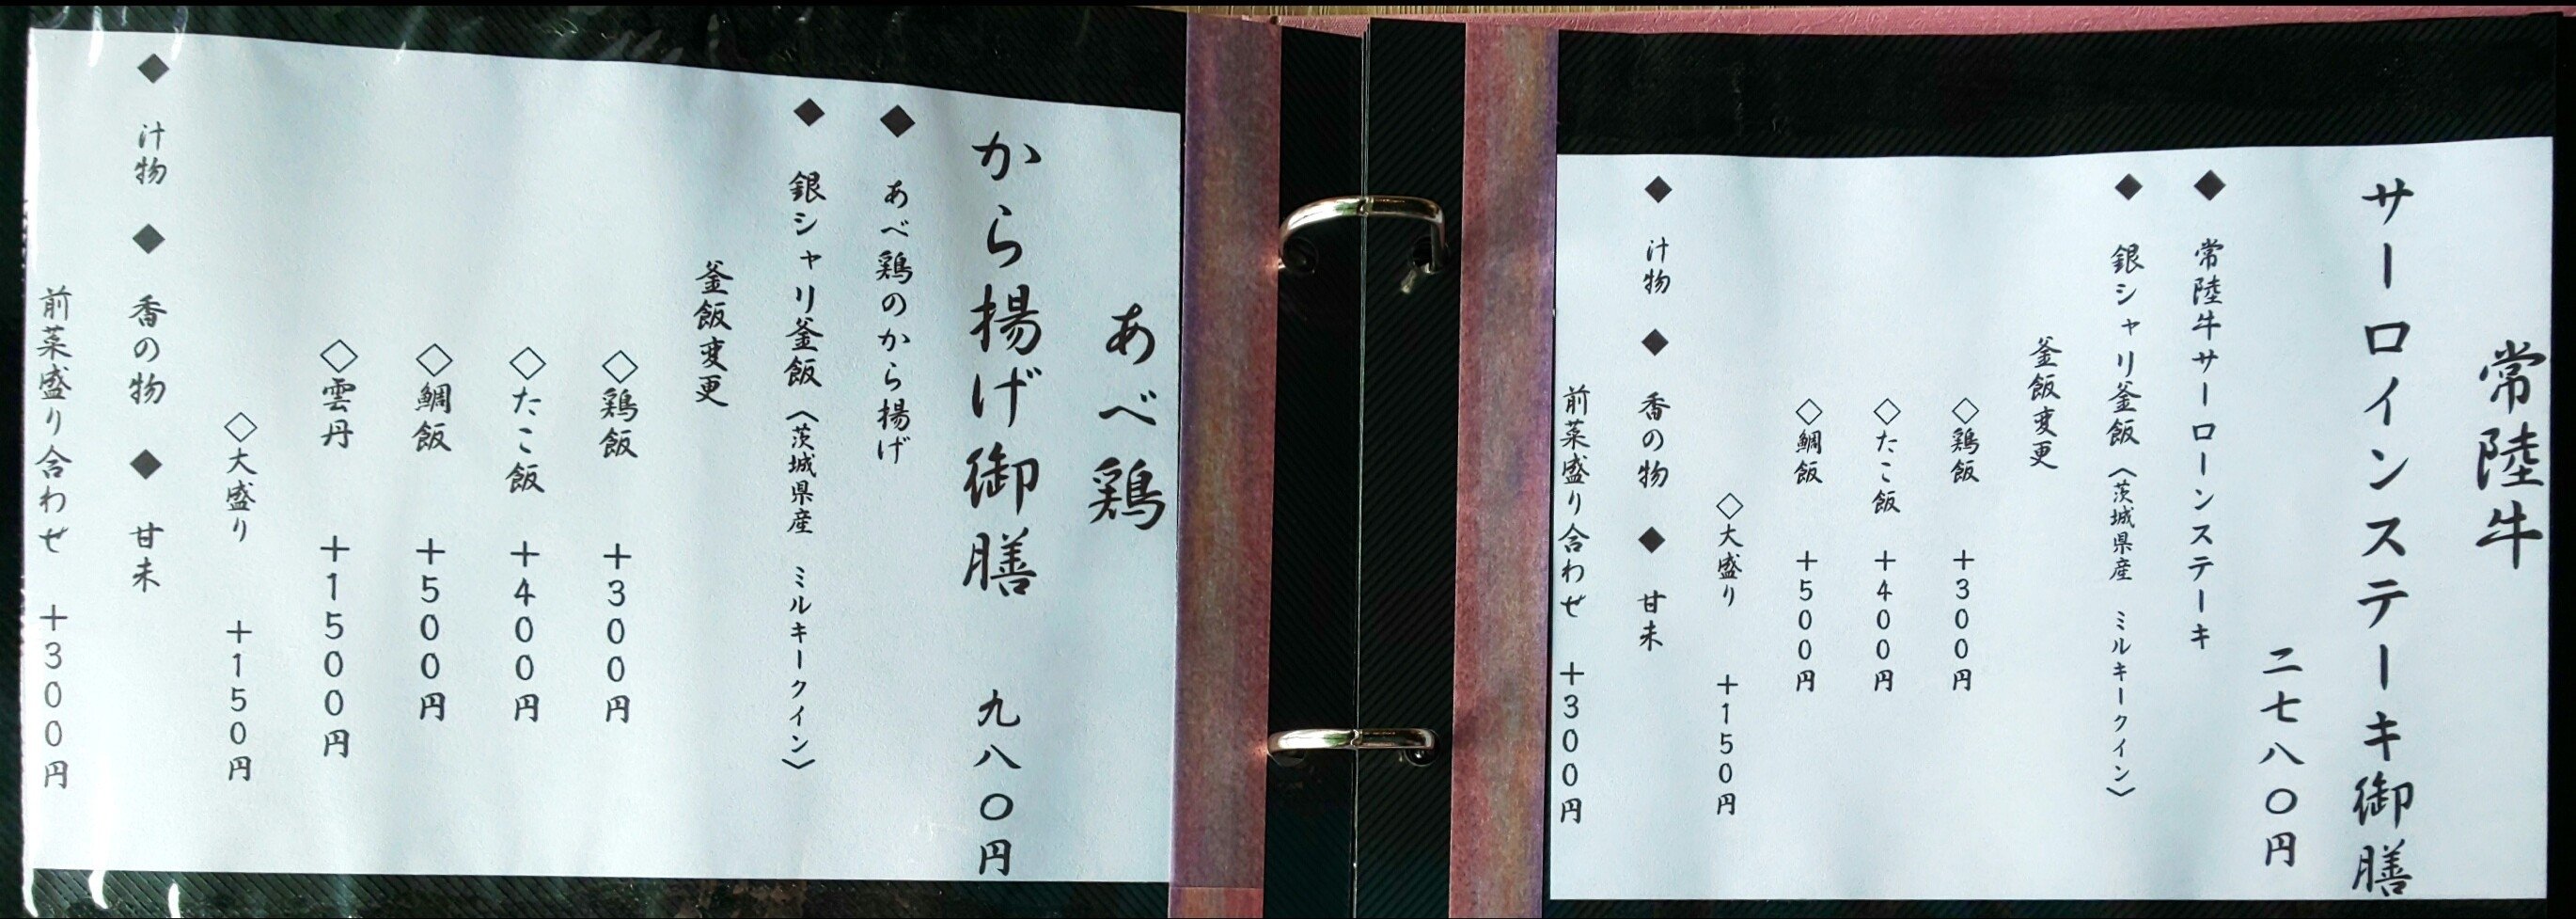 常陸牛
サーロインステーキ御膳
二七八〇円
◆ 常陸牛サーローンステーキ
◆ 銀シャリ釜飯〈茨城県産 ミルキークイン〉
釜飯変更
◇鶏飯 +300円
◇たこ飯 +400円
◇鯛飯 +500円
◇大盛り +150円
◆ 汁物 ◆ 香の物 ◆ 甘未
前菜盛り合わせ +300円
あべ鶏
から揚げ御膳 九八〇円
◆ あべ鶏のから揚げ
◆ 銀シャリ釜飯〈茨城県産 ミルキークイン〉
釜飯変更
◇鶏飯 +300円
◇たこ飯 +400円
◇鯛飯 +500円
◇雲丹 +1500円
◇大盛り +150円
◆ 汁物 ◆ 香の物 ◆ 甘未
前菜盛り合わせ +300円